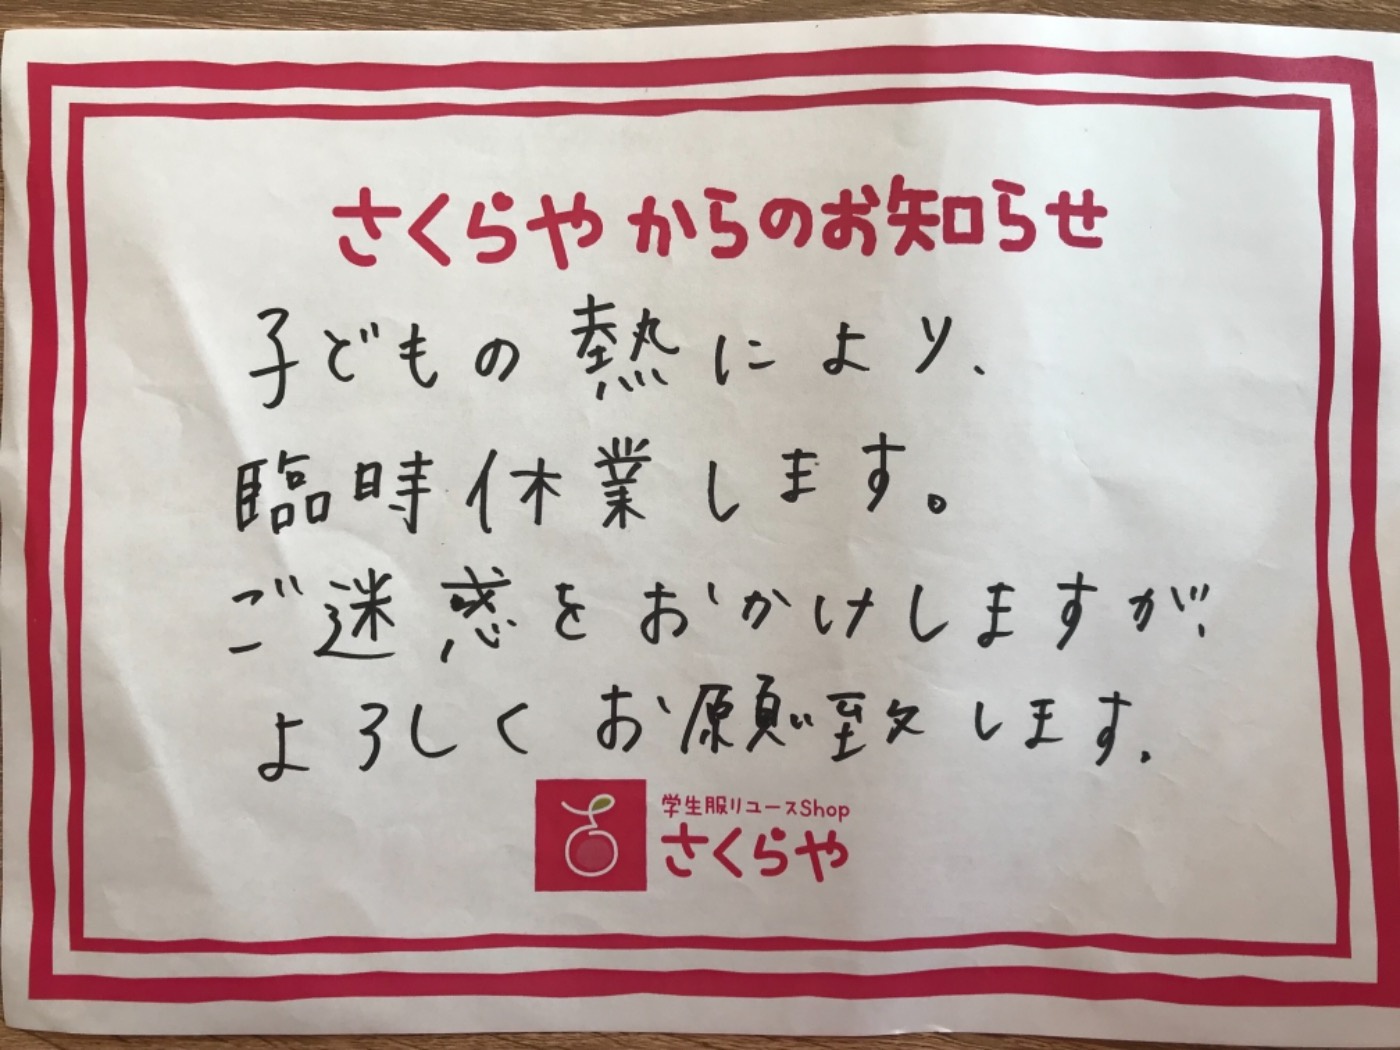 さくらやからのお知らせ
子どもの熱により、
臨時休業します。
ご迷惑をおかけしますが、
よろしくお願い致します。
学生服リユースShop
さくらや